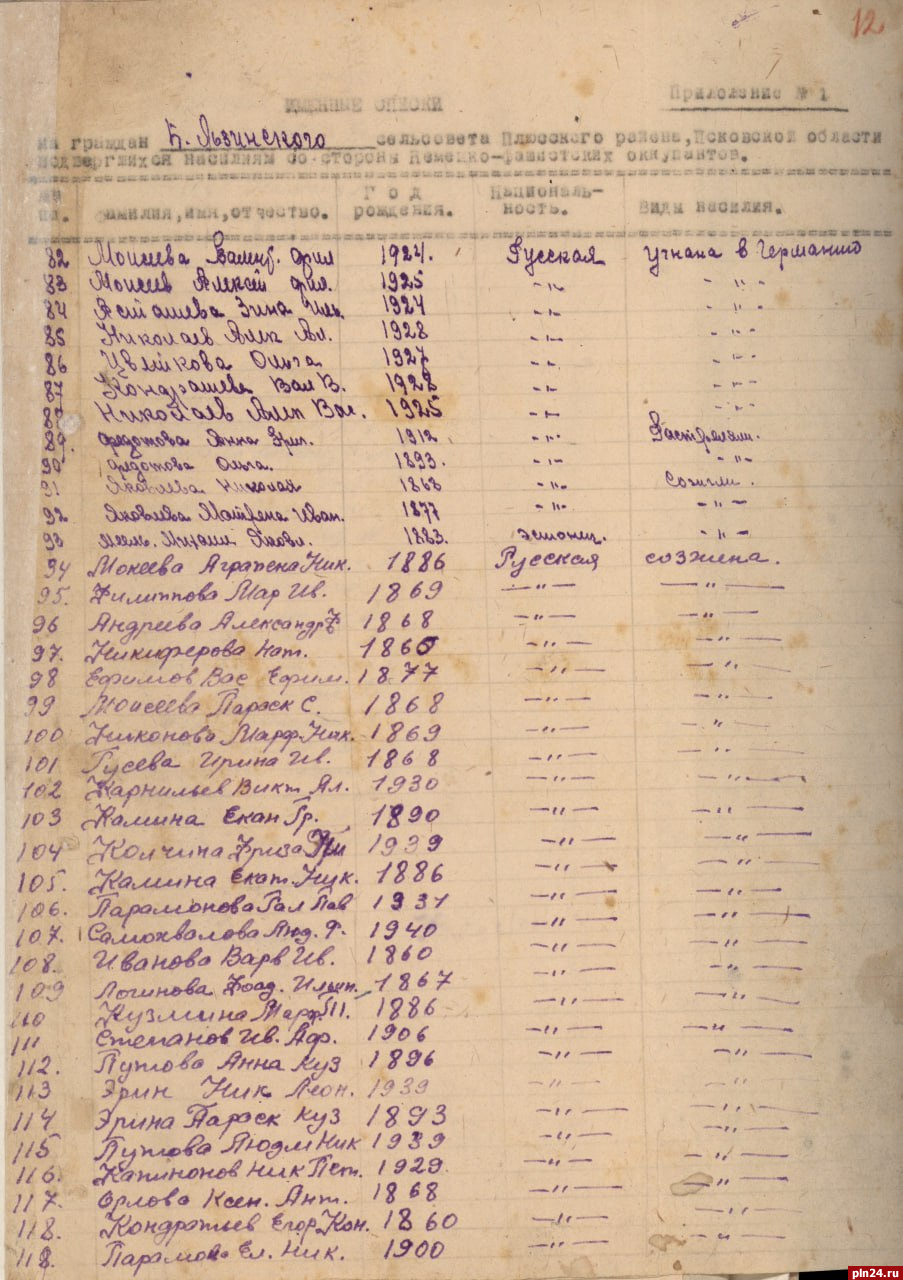 12
Приложение № 1
ИМЕННЫЕ СПИСКИ
на граждан Б. Льзинского сельсовета Плюсского района, Псковской области
подвергшихся насилиям со стороны немецко-фашистских оккупантов.
№№ пп. Фамилия, имя, отчество. Год рождения. Национальность. Виды насилия.
82 Моисеева Валент. Фил 1924. Русская угнана в Германию
83 Моисеев Алексей Фил. 1925 -"- -"-
84 Асташева Зина Иль. 1924 -"- -"-
85 Николаев Алек Ал. 1928 -"- -"-
86 Цветкова Ольга 1927 -"- -"-
87 Кондрашева Вал В. 1928 -"- -"-
88 Николаев Алек Вас. 1925 -"- -"-
89. Федотова Анна Григ. 1912 -"- Растреляли.
90 Федотова Ольга. 1893. -"- -"-
91 Яковлева Николай 1868 -"- Сожгли.
92 Яковлева Матрена Иван. 1877 -"- -"-
93 Михаил Яковл. 1883. эстонец. -"-
94 Мокеева Аграпена Ник. 1886 Русская созжена.
95. Филиппова Мар Ив. 1869 -"- -"-
96 Андреева Александр Ф 1868 -"- -"-
97. Никиферова Нат. 1860 -"- -"-
98 Ефимов Вас Ефим. 1877 -"- -"-
99 Моисеева Параск С. 1868 -"- -"-
100 Никонова Марф Ник. 1869 -"- -"-
101 Гусева Ирина Ив. 1868 -"- -"-
102 Карнильев Викт Ал. 1930 -"- -"-
103 Камина Екан Гр. 1890 -"- -"-
104 Колчина Фриза 1939 -"- -"-
105. Камина Екат. Нук. 1886 -"- -"-
106. Парамонова Гал Пав 1931 -"- -"-
107. Самохвалова Анд. Ф. 1940 -"- -"-
108. Иванова Варв Ив. 1860 -"- -"-
109 Логинова 1867 -"- -"-
110 Кузмина Марф 1886 -"- -"-
111 Степанов Ив. Аф. 1906 -"- -"-
112. Путова Анна Куз 1896 -"- -"-
113 Эрин Ник Леон. 1939 -"- -"-
114 Эрина Параск Куз 1893 -"- -"-
115 Путова Людм Ник 1939 -"- -"-
116. Капинонов Ник Пет. 1929. -"- -"-
117. Орлова Ксен. Ант. 1868 -"- -"-
118. Кондратьев Егор Кон. 1860 -"- -"-
118. Парамова Ел. Ник. 1900 -"- -"-
pln24.ru